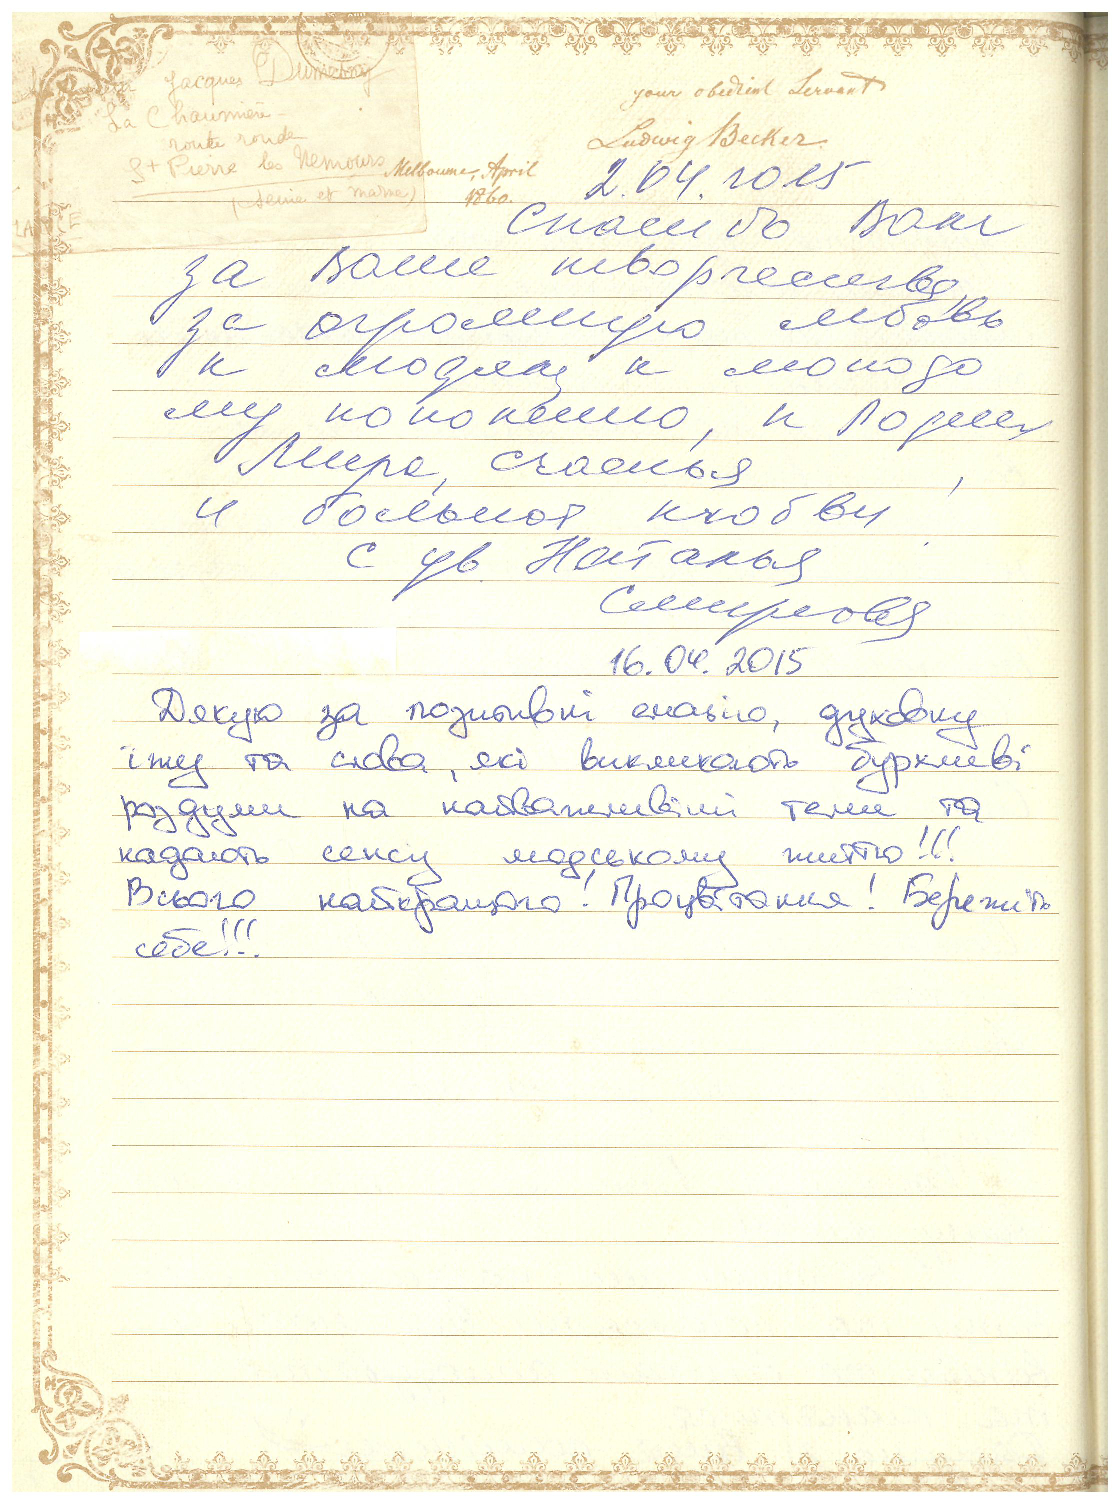 Jacques Dumesny
La Chaumière -
route ronde
St Pierre les Nemours
(Seine et marne)
your obedient Servant
Ludwig Becker.
Melbourne, April
1860.
2.04.2015
Спасибо Вам
за Ваше творчество,
за огромную любовь
к людям, к молодо
му поколению, к Родине
Мира, счастья,
и большой любви.
С ув. Наталья
Смирнова
16.04.2015
Дякую за позитивні емоції, духовну
їжу та слова, які викликають бурхливі
роздуми на найважливіші теми та
надають сенсу людському життю!!!
Всього найкращого! Процвітання! Бережіть
себе!!!